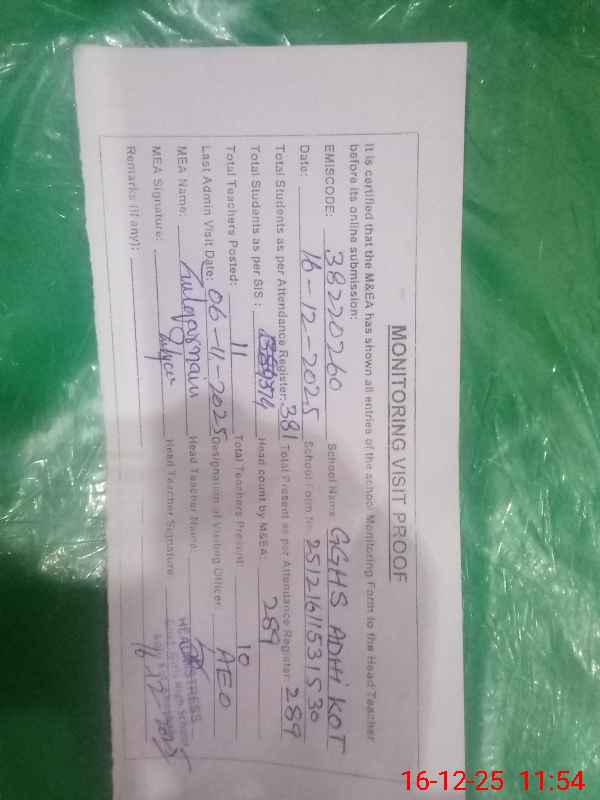 MONITORING VISIT PROOF
It is certified that the M&EA has shown all entries of the school Monitoring Form to the Head Teacher
before its online submission:
EMISCODE: 38220260 School Name GGHS ADHI KOT
Date: 16-12-2025 School Form No 2512161153153⁠0
Total Students as per Attendance Register: 381 Total Present as per Attendance Register: 289
Total Students as per SIS: 374 Head count by M&EA: 289
Total Teachers Posted: 11 Total Teachers Present: 10
Last Admin Visit Date: 06-11-2025 Designation of Visiting Officer: AEO
MEA Name: Zulqarnain Head Teacher Name:
MEA Signature: Head Teacher Signature
HEADMISTRESS
Remarks (if any):
16-12-25 11:54